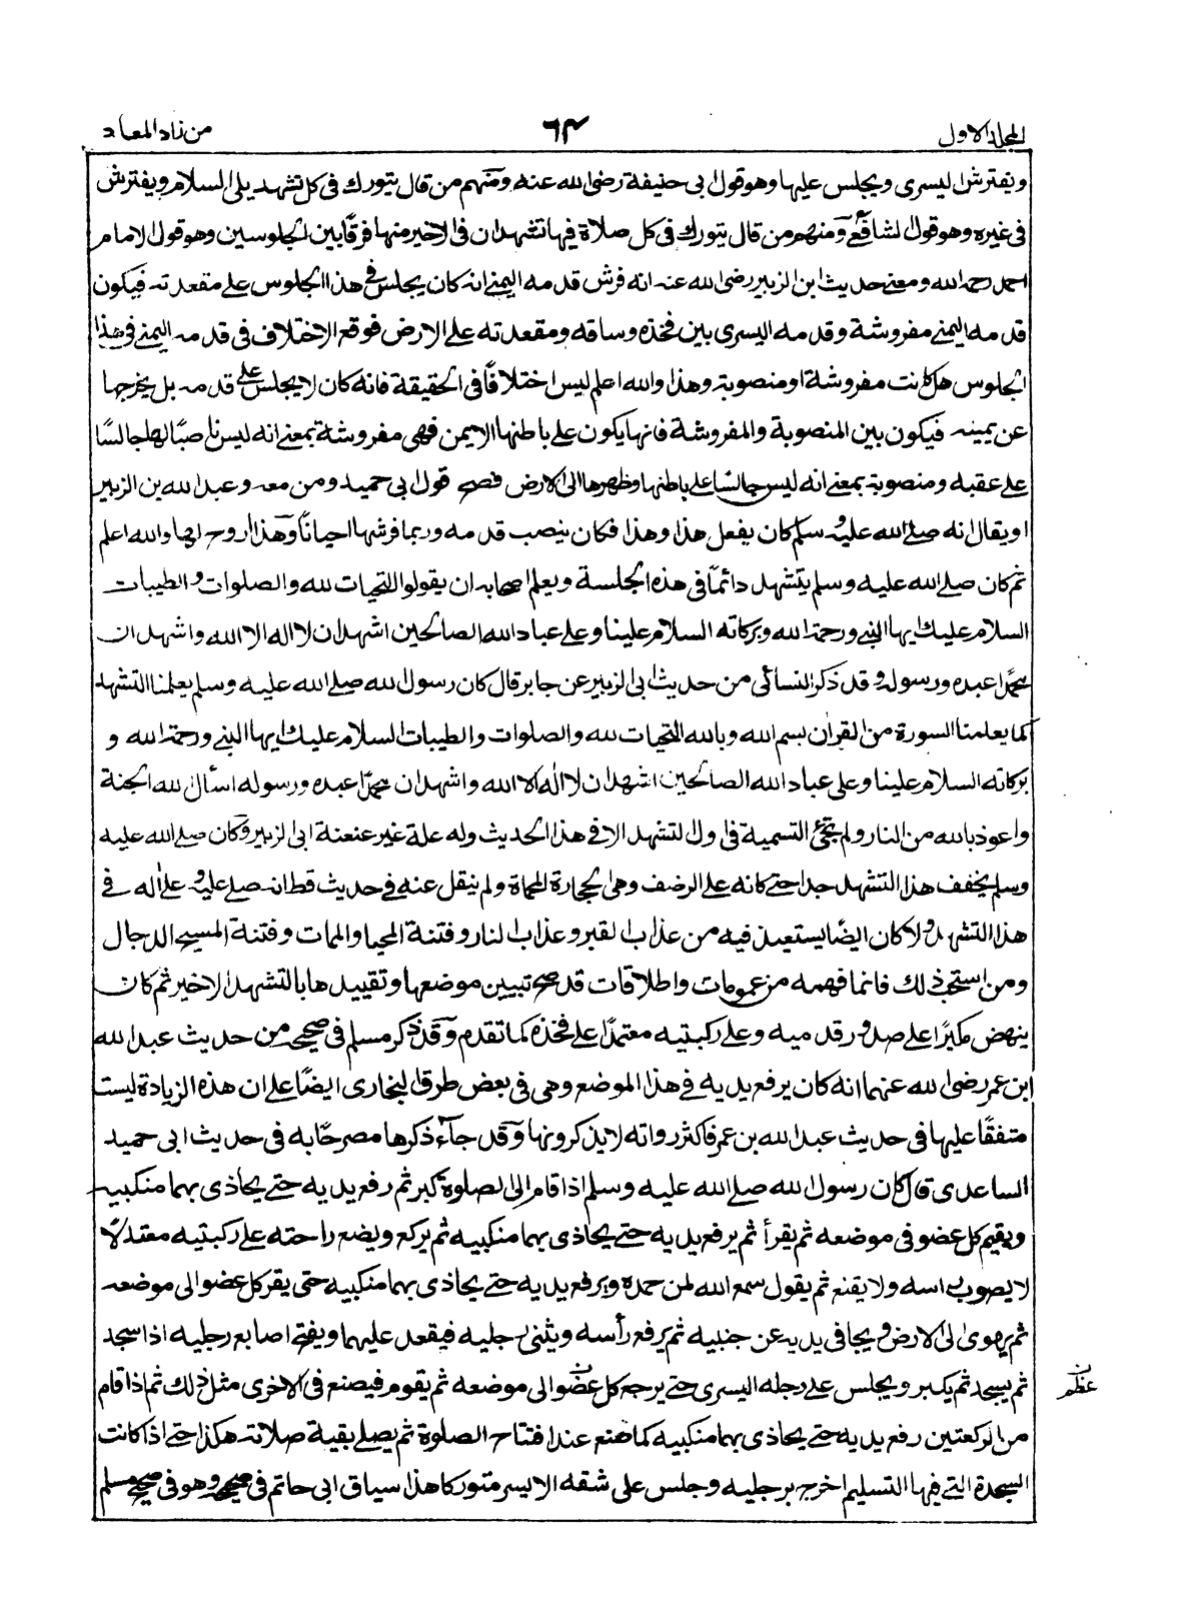 المجلد الاول
٦٣
من زاد المعاد
ويفترش اليسرى ويجلس عليها وهو قول ابى حنيفة رضى الله عنه ومنهم من قال يتورك فى كل تشهد يلى السلام ويفترش
فى غيره وهو قول الشافعى ومنهم من قال يتورك فى كل صلاة فيها تشهدان فى الاخير منها فرقًا بين الجلوسين وهو قول الامام
احمد رحمه الله ومعنى حديث ابن الزبير رضى الله عنه انه فرش قدمه اليمنى انه كان يجلس فى هذا الجلوس على مقعدته فيكون
قدمه اليمنى مفروشة وقدمه اليسرى بين فخذه وساقه ومقعدته على الارض فوقع الاختلاف فى قدمه اليمنى فى هذا
الجلوس هل كانت مفروشة او منصوبة وهذا والله اعلم ليس اختلافًا فى الحقيقة فانه كان لا يجلس على قدمه بل يخرجها
عن يمينه فيكون بين المنصوبة والمفروشة فانها يكون على باطنها الايمن فهى مفروشة بمعنى انه ليس ناصبًا لها جالسًا
على عقبه ومنصوبة بمعنى انه ليس جالسًا على باطنها وظهرها الى الارض فصح قول ابى حميد ومن معه وعبد الله بن الزبير
او يقال انه صلى الله عليه وسلم كان يفعل هذا وهذا فكان ينصب قدمه وربما فرشها احيانًا وهذا اروح لها والله اعلم
ثم كان صلى الله عليه وسلم يتشهد دائمًا فى هذه الجلسة ويعلم اصحابه ان يقولوا التحيات لله والصلوات والطيبات
السلام عليك ايها النبى ورحمة الله وبركاته السلام علينا وعلى عباد الله الصالحين اشهد ان لا اله الا الله واشهد ان
محمدًا عبده ورسوله وقد ذكر النسائى من حديث ابى الزبير عن جابر قال كان رسول الله صلى الله عليه وسلم يعلمنا التشهد
كما يعلمنا السورة من القرآن بسم الله وبالله التحيات لله والصلوات والطيبات السلام عليك ايها النبى ورحمة الله و
بركاته السلام علينا وعلى عباد الله الصالحين اشهد ان لا اله الا الله واشهد ان محمدًا عبده ورسوله اسأل الله الجنة
واعوذ بالله من النار ولم تجئ التسمية فى اول التشهد الا فى هذا الحديث وله علة غير عنعنة ابى الزبير وكان صلى الله عليه
وسلم يخفف هذا التشهد جدا حتى كانه على الرضف وهى الحجارة المحماة ولم ينقل عنه فى حديث قط انه صلى عليه وعلى اله فى
هذا التشهد ولا كان ايضًا يستعيذ فيه من عذاب القبر وعذاب النار وفتنة المحيا والممات وفتنة المسيح الدجال
ومن استحب ذلك فانما فهمه من عمومات واطلاقات قد صح تبيين موضعها وتقييدها بالتشهد الاخير ثم كان
ينهض مكبرًا على صدور قدميه وعلى ركبتيه معتمدًا على فخذه كما تقدم وقد ذكر مسلم فى صحيحه من حديث عبد الله
ابن عمر رضى الله عنهما انه كان يرفع يديه فى هذا الموضع وهى فى بعض طرق البخارى ايضًا على ان هذه الزيادة ليست
متفقًا عليها فى حديث عبد الله بن عمر فاكثر رواته لا يذكرونها وقد جاء ذكرها مصرحًا به فى حديث ابى حميد
الساعدى قال كان رسول الله صلى الله عليه وسلم اذا قام الى الصلوة كبر ثم رفع يديه حتى يحاذى بهما منكبيه
ويقيم كل عضو فى موضعه ثم يقرأ ثم يرفع يديه حتى يحاذى بهما منكبيه ثم يركع ويضع راحته على ركبتيه معتدلًا
لا يصوب رأسه ولا يقنع ثم يقول سمع الله لمن حمده ويرفع يديه حتى يحاذى بهما منكبيه حتى يقر كل عضو الى موضعه
ثم يهوى الى الارض ويجافى يديه عن جنبيه ثم يرفع رأسه ويثنى رجليه فيقعد عليهما ويفتح اصابع رجليه اذا سجد
ثم يسجد ثم يكبر ويجلس على رجله اليسرى حتى يرجع كل عضو الى موضعه ثم يقوم فيصنع فى الاخرى مثل ذلك ثم اذا قام
من الركعتين رفع يديه حتى يحاذى بهما منكبيه كما صنع عند افتتاح الصلوة ثم يصلى بقية صلاته هكذا حتى اذا كانت
السجدة التى فيها التسليم اخرج برجليه وجلس على شقه الايسر متوركا هذا سياق ابى حاتم فى صحيحه وهو فى صحيح مسلم
عظم